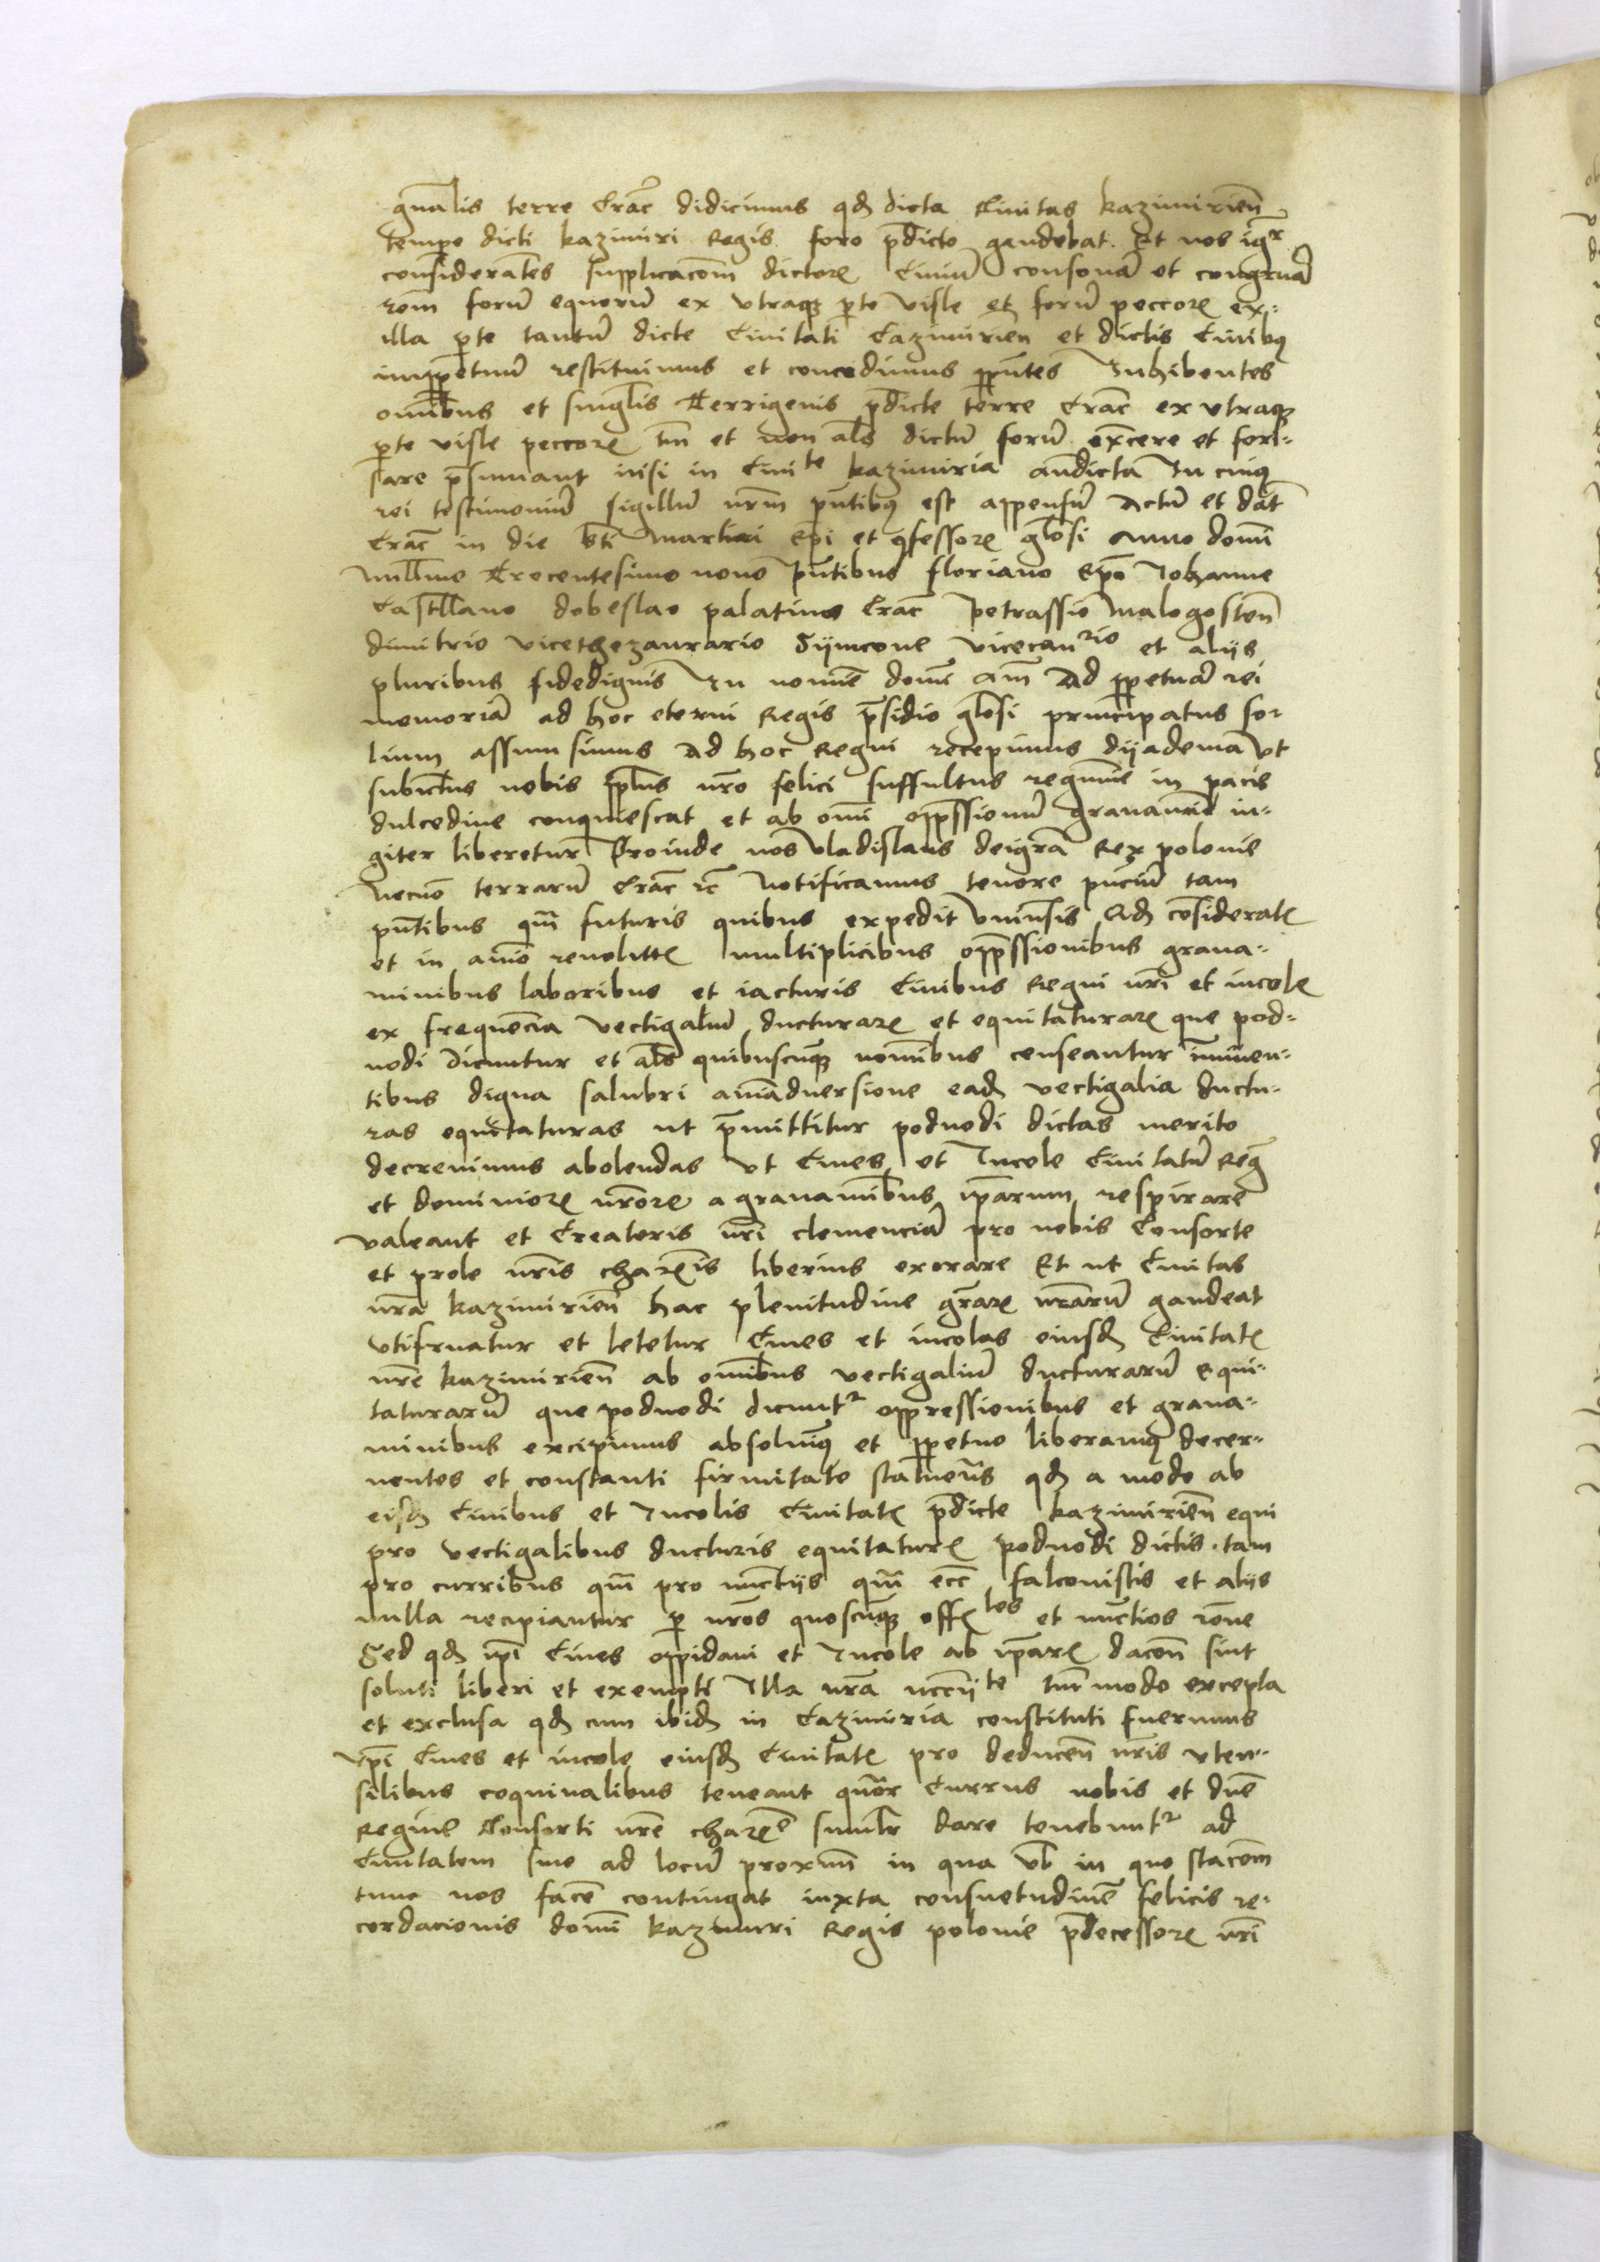 gnalis terre Crac̄ didicimus qd dicta Civitas kazimirien̄
tempe dicti kazimiri Regis foro p̄dicto gaudebat. Et nos igr
considerantes supplicacōm dictorꝝ Civiū consonā et congruā
rōm forū equorū ex utraqꝫ pte visle et forū peccorꝝ ex-
illa pte tantū dicte Civitati Cazimirien et dictis Civibꝰ
impppetuū restituimus et concedimus pn̄tes Inhibentes
omībus et singlis Terrigenis p̄dicte terre Crac̄ ex utraqꝫ
pte visle peccorꝝ tm̄ et non als dictū forū exc̄ere et fori-
sare p̄sumant nisi in Civite kazimiria an̄dicta In cuiꝰ
rei testimoniū sigillū nrm̄ pn̄tibꝰ est appensū Actū et dat̄
Crac̄ in die bt̄i Martini Ep̄i et ꝯfessorꝝ glōsi Anno domī
millmo Trecentesimo nono Pn̄tibus floriano Ep̄o Johanne
Castllano dobeslao palatinos Crac̄ Petrassio Malogosten̄
dimitrio vicethezaurario Symeone vicecanrio et alijs
pluribus fidedignis In nomīe domī Am̄ Ad ppetuā rei
memoriā ad hoc eterni Regis p̄sidio glōsi principatus so-
lium assumsimus Ad hoc Regni recepimus dijadema ut
subiectus nobis pplus nro felici suffultus regimīe in pacis
dulcedine conquiescat et ab omī opp̄ssionū gravamīe iu-
giter liberetur Proinde nos Vladislaus deigrā Rex polonie
Necnō terrarū Crac̄ ꝛc̄ Notificamus tenore pn̄ciū tam
pn̄tibus qm̄ futuris quibus expedit vniuersis Qd consideratꝭ
et in aīmo revolutꝭ multiplicibus opp̄ssionibus grava-
minibus laboribus et iacturis Civibus Regni nri et incolꝭ
ex frequēcia vectigaliū ducturarꝝ et equitaturarꝝ que pod-
uodi dicuntur et als quibuscunqꝫ nomībus censeantur im̄inen-
tibus digna salubri aīmadversione eadꝫ vectigalia ductu-
ras equitaturas ut p̄mittitur poduodi dictas merito
decrevimus abolendas ut Cives et Incole Civitatū Regꝭ
et dominiorꝝ nrōrꝝ a gravamībus ip̄arum respirare
valeant et Creatoris nri clemenciā pro nobis Consorte
et prole nris charꝭis liberius exorare Et ut Civitas
nra kazimirien̄ hac plenitudine grārꝝ nrarū gaudeat
utifruatur et letetur Cives et incolas eiusdꝫ Civitatꝭ
nre kazimirien̄ ab omībus vectigaliū ducturarū equi-
taturarū que poduodi dicunt᷑ oppressionibus et grava-
minibus excipimus absolvimꝰ et ppetuo liberamꝰ decer-
nentes et constanti firmitate statuentes qd a modo ab
eisdꝫ Civibus et Incolis Civitatꝭ p̄dicte kazimirien̄ equi
pro vectigalibus ducturis equitaturꝭ poduodi dictis tam
pro curribus qm̄ pro nunctijs qm̄ ecc̄ falconistis et alijs
nulla recipiantur p nros quoscūqꝫ offꝭles et nunctios rōne
Sed qd ip̄i Cives oppidani et Incole ab ip̄arꝝ dacōn sint
soluti liberi et exempti Illa nra nccīite tm̄modo excepta
et exclusa qd cum ibidꝫ in Cazimiria constituti fuerimus
Ip̄i Cives et incole eiusdꝫ Civitatꝭ pro deducen̄ nris uten-
silibus coquinalibus teneant quōr Currus nobis et dn̄e
Regine Consorti nre charꝭe simltr dare tenebunt᷑ ad
Civitatem sive ad locū proximū in qua vl̄ in quo stacōm
tunc nos facē contingat iuxta consuetudinē felicis re-
cordacionis domī kazimiri Regis polonie p̄decessorꝭ nri